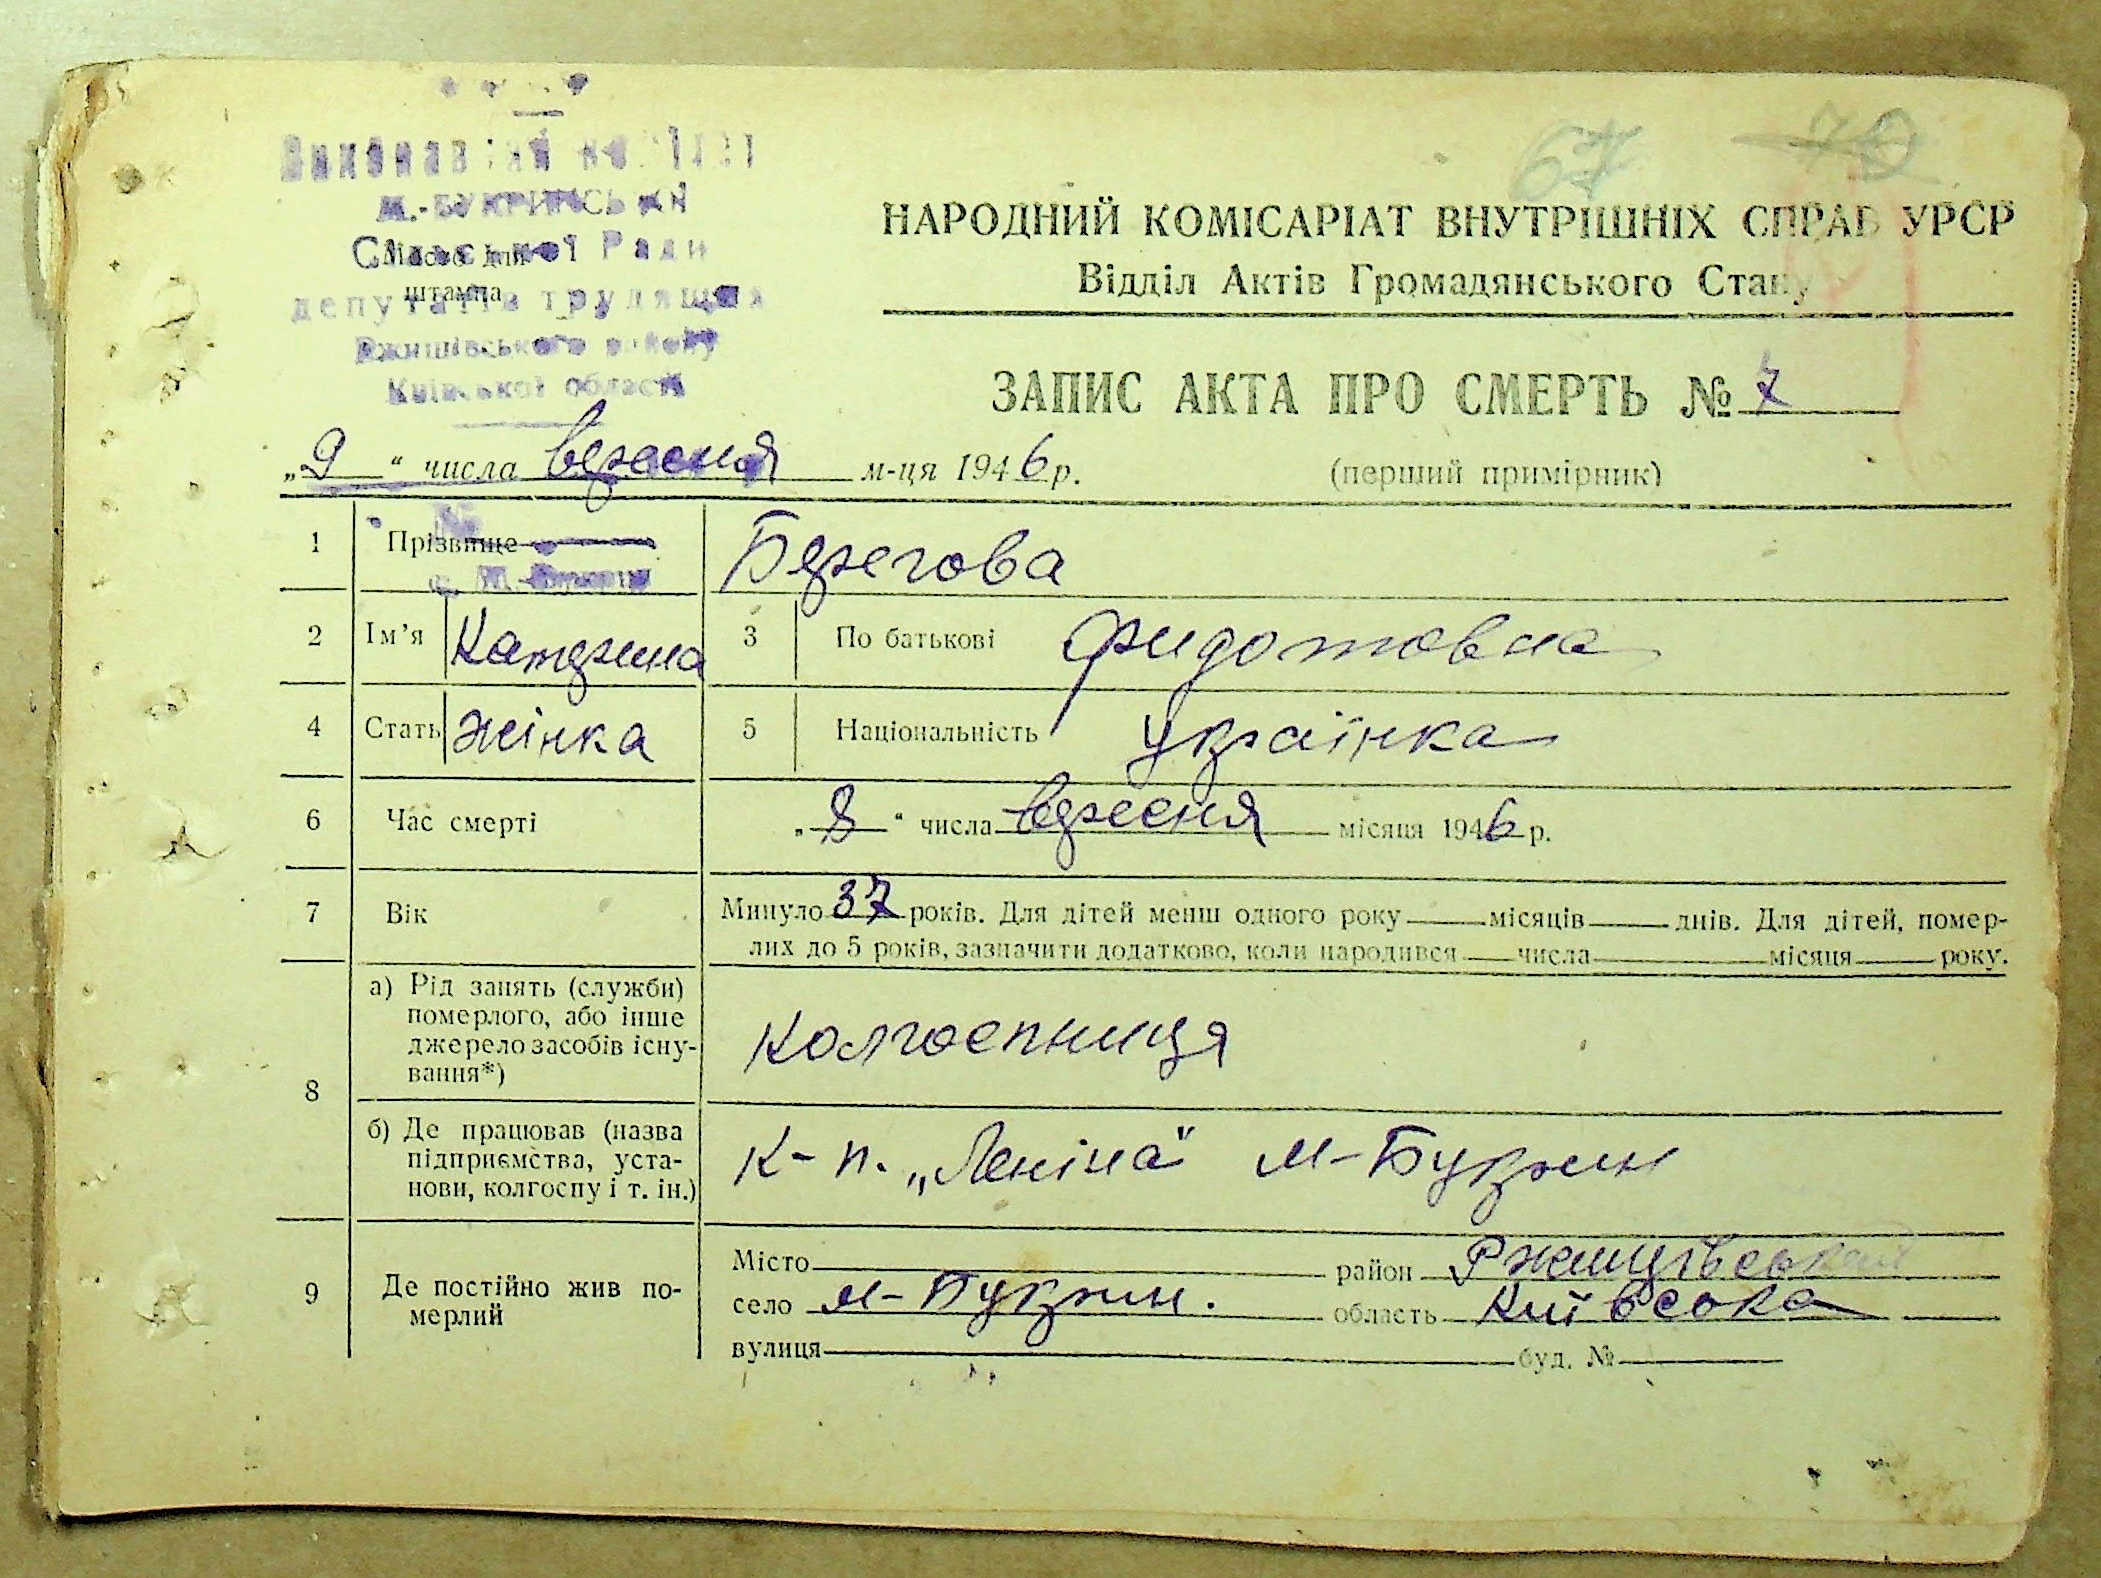 У Р С Р
Виконавчий комітет
М.-БУКРИНСЬКОЇ
Сільської Ради
Місце для
штампа
депутатів трудящих
Ржищівського району
Київської області
67 70
НАРОДНИЙ КОМІСАРІАТ ВНУТРІШНІХ СПРАВ УРСР
Відділ Актів Громадянського Стану
ЗАПИС АКТА ПРО СМЕРТЬ № 7
„9“ числа вересня м-ця 1946 р. (перший примірник)
1 Прізвище Берегова
с. М.-Букрин
2 Ім’я Катерина 3 По батькові Федотовна
4 Стать жінка 5 Національність українка
6 Час смерті „8“ числа вересня місяця 1946 р.
7 Вік Минуло 37 років. Для дітей менш одного року місяців днів. Для дітей, помер-
лих до 5 років, зазначити додатково, коли народився числа місяця року.
8 а) Рід занять (служби)
померлого, або інше
джерело засобів існу-
вання*)
колгоспниця
б) Де працював (назва
підприємства, уста-
нови, колгоспу і т. ін.)
к-п. „Леніна“ М-Букрин
9 Де постійно жив по-
мерлий
Місто район Ржищівський
село М-Букрин. область Київська
вулиця буд. №